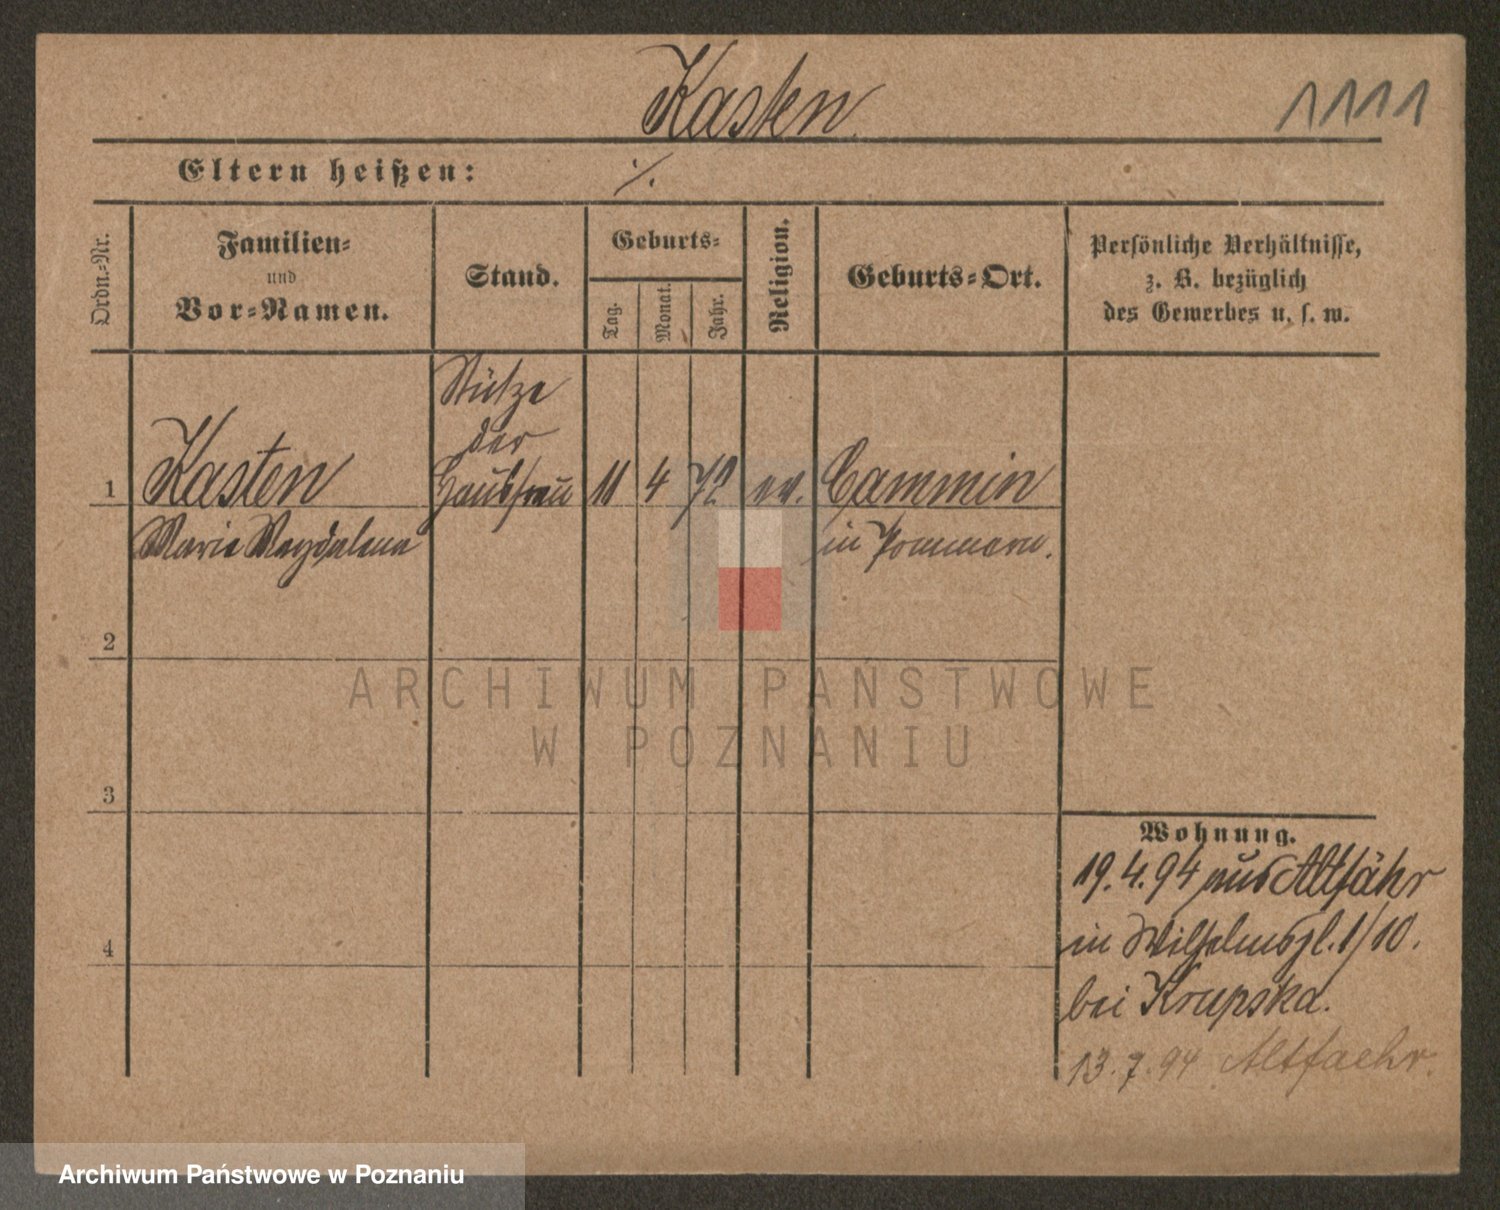 Kasten
1111
Eltern heißen: ./.
Ordn.-Nr.
Familien-
und
Vor-Namen.
Stand.
Geburts-
Tag.
Monat.
Jahr.
Religion.
Geburts-Ort.
Persönliche Verhältnisse,
z. B. bezüglich
des Gewerbes u. s. w.
Stütze
der
1 Kasten Hausfrau 11 4 72 ev. Cammin
Marie Magdalena in Pommern.
2
ARCHIWUM PAŃSTWOWE
W POZNANIU
3
Wohnung.
19.4.94 aus Altfähr
4 in Wilhelmspl. 1/10.
bei Krupska.
13.7.94 Altfaehr.
Archiwum Państwowe w Poznaniu